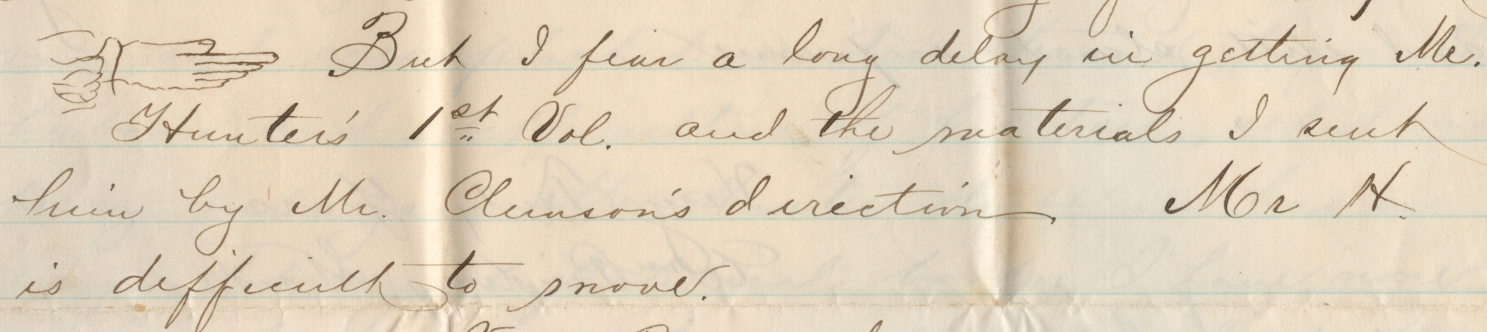 But I fear a long delay in getting Mr.
Hunter's 1st Vol. and the materials I sent
him by Mr. Clemson's direction. Mr H.
is difficult to move.